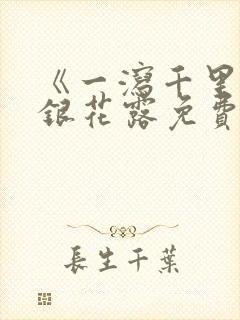 《一瀉千里
銀花露免費
長生千葉